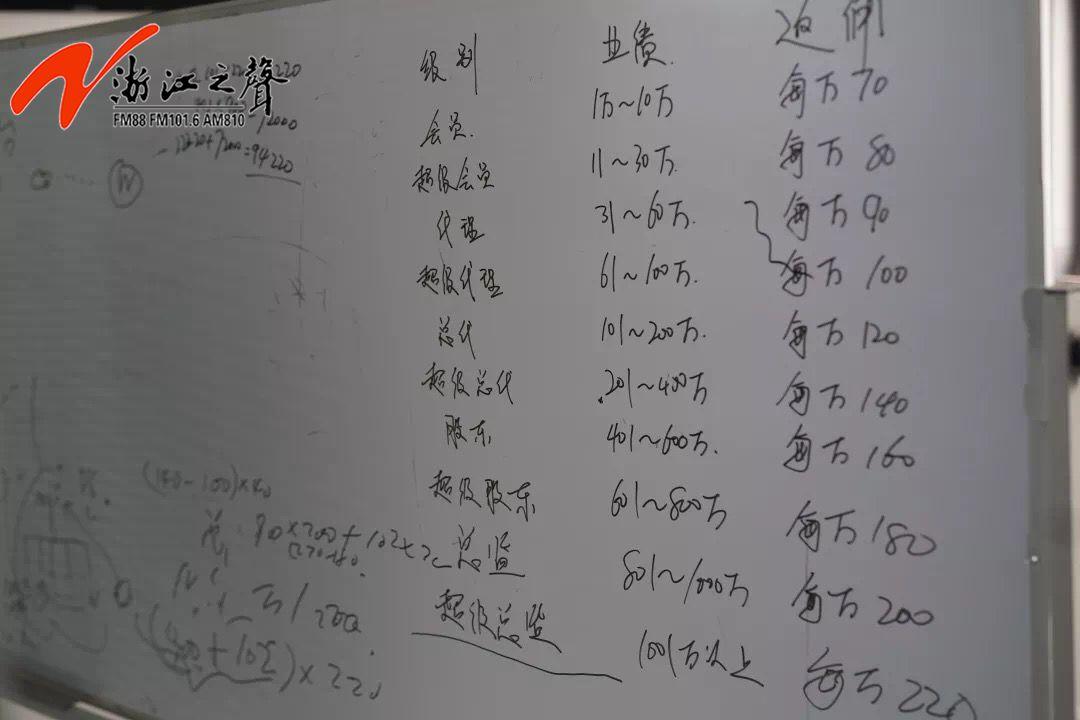 浙江之聲
FM88 FM101.6 AM810
级别 业绩 返佣
会员 1万~10万 每万70
超级会员 11~30万 每万80
代理 31~60万 每万90
超级代理 61~100万 每万100
总代 101~200万 每万120
超级总代 201~400万 每万140
股东 401~600万 每万160
超级股东 601~800万 每万180
总监 801~1000万 每万200
超级总监 1001万以上 每万220
=94220
(180-100)×
80×200+102×22
)×220